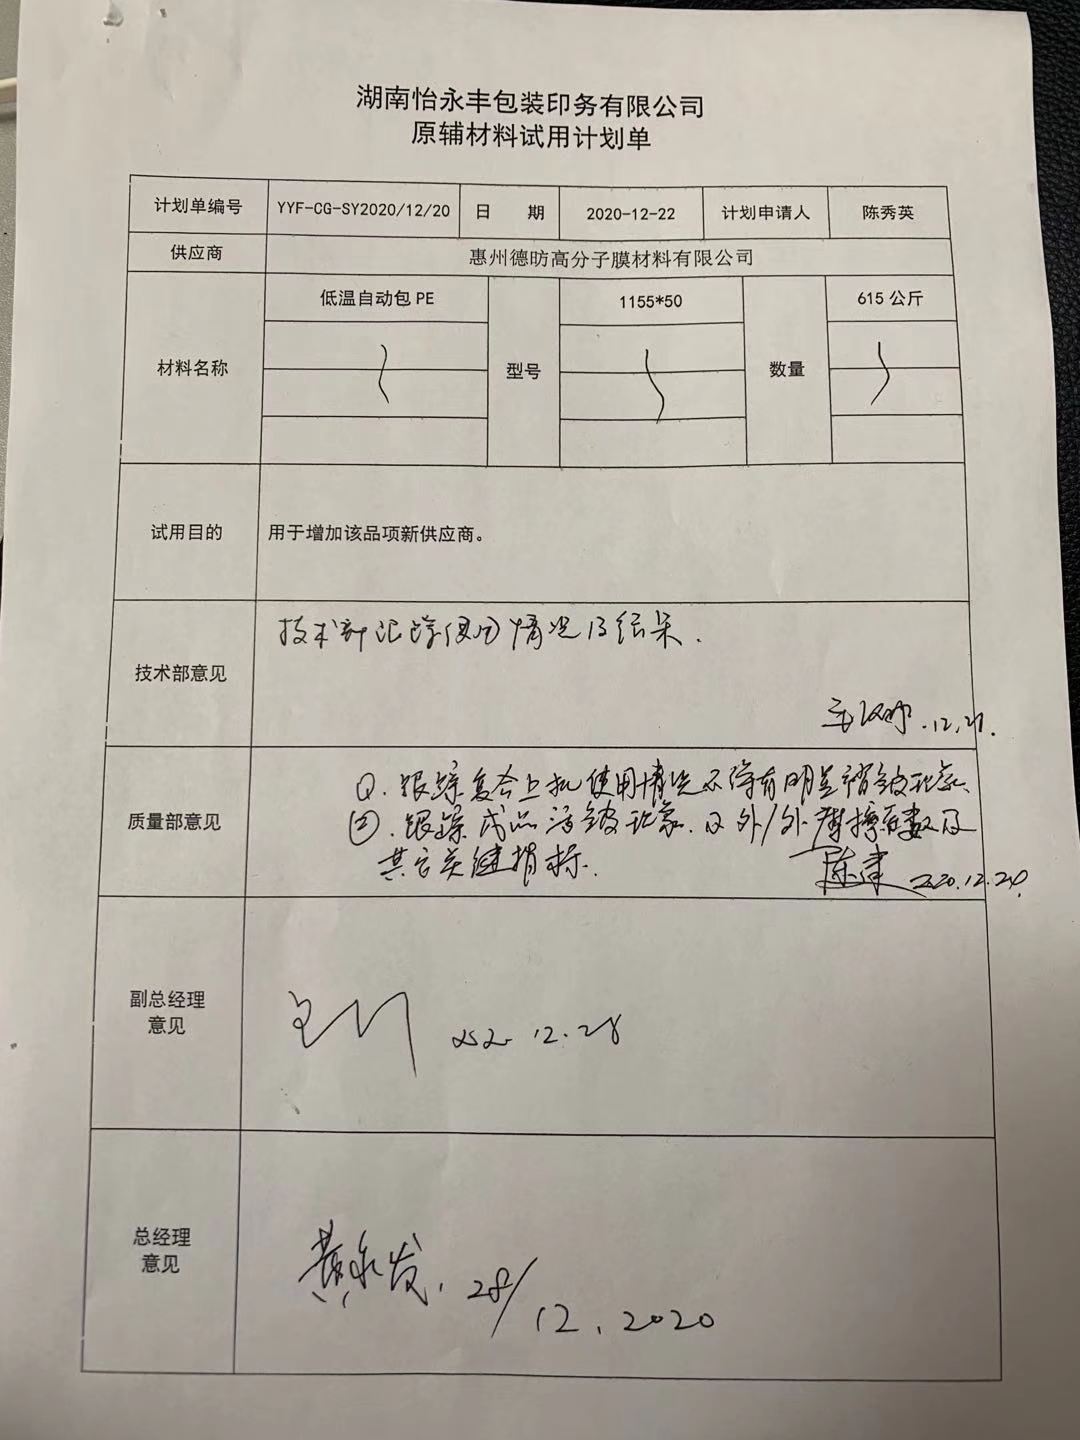 湖南怡永丰包装印务有限公司
原辅材料试用计划单
计划单编号 YYF-CG-SY2020/12/20 日 期 2020-12-22 计划申请人 陈秀英
供应商 惠州德昉高分子膜材料有限公司
材料名称 低温自动包PE 型号 1155*50 数量 615公斤
试用目的 用于增加该品项新供应商。
技术部意见 技术部记录使用情况及结果.
12.21.
质量部意见 ①.跟踪复合上机使用情况
②.跟踪成品 及外/外摩擦系数及
其它关键指标. 陈建 2020.12.24.
副总经理
意见 12.28
总经理
意见 黄永发. 28/12.2020